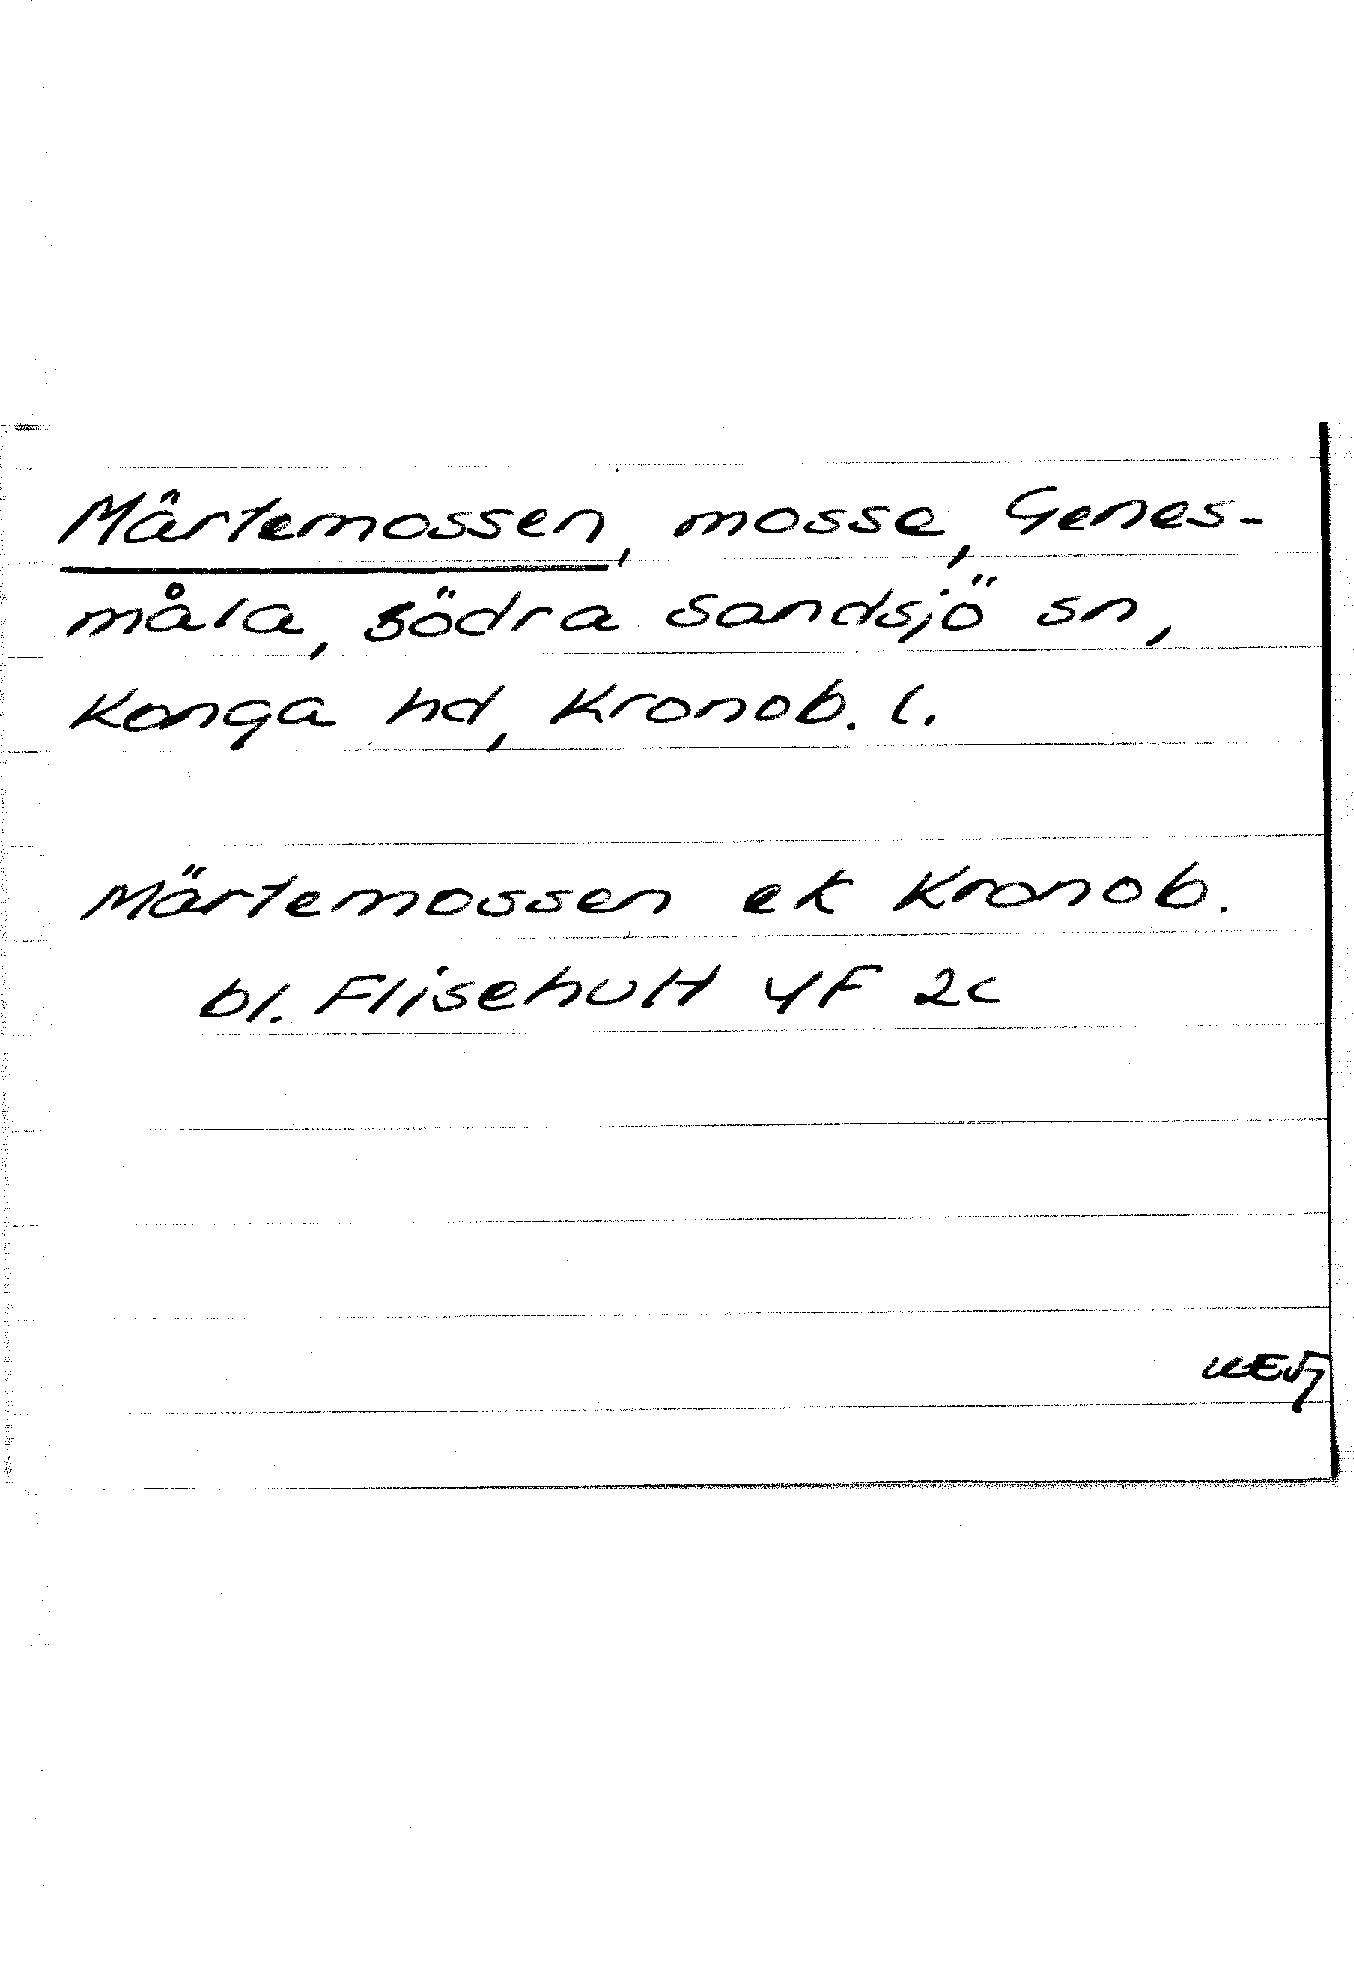 Mårtemossen, mosse, Genes-
måla, södra Sandsjö sn,
Konga hd, Kronob. l.
Märtemossen ek Kronob.
bl. Flisehult 4F 2c